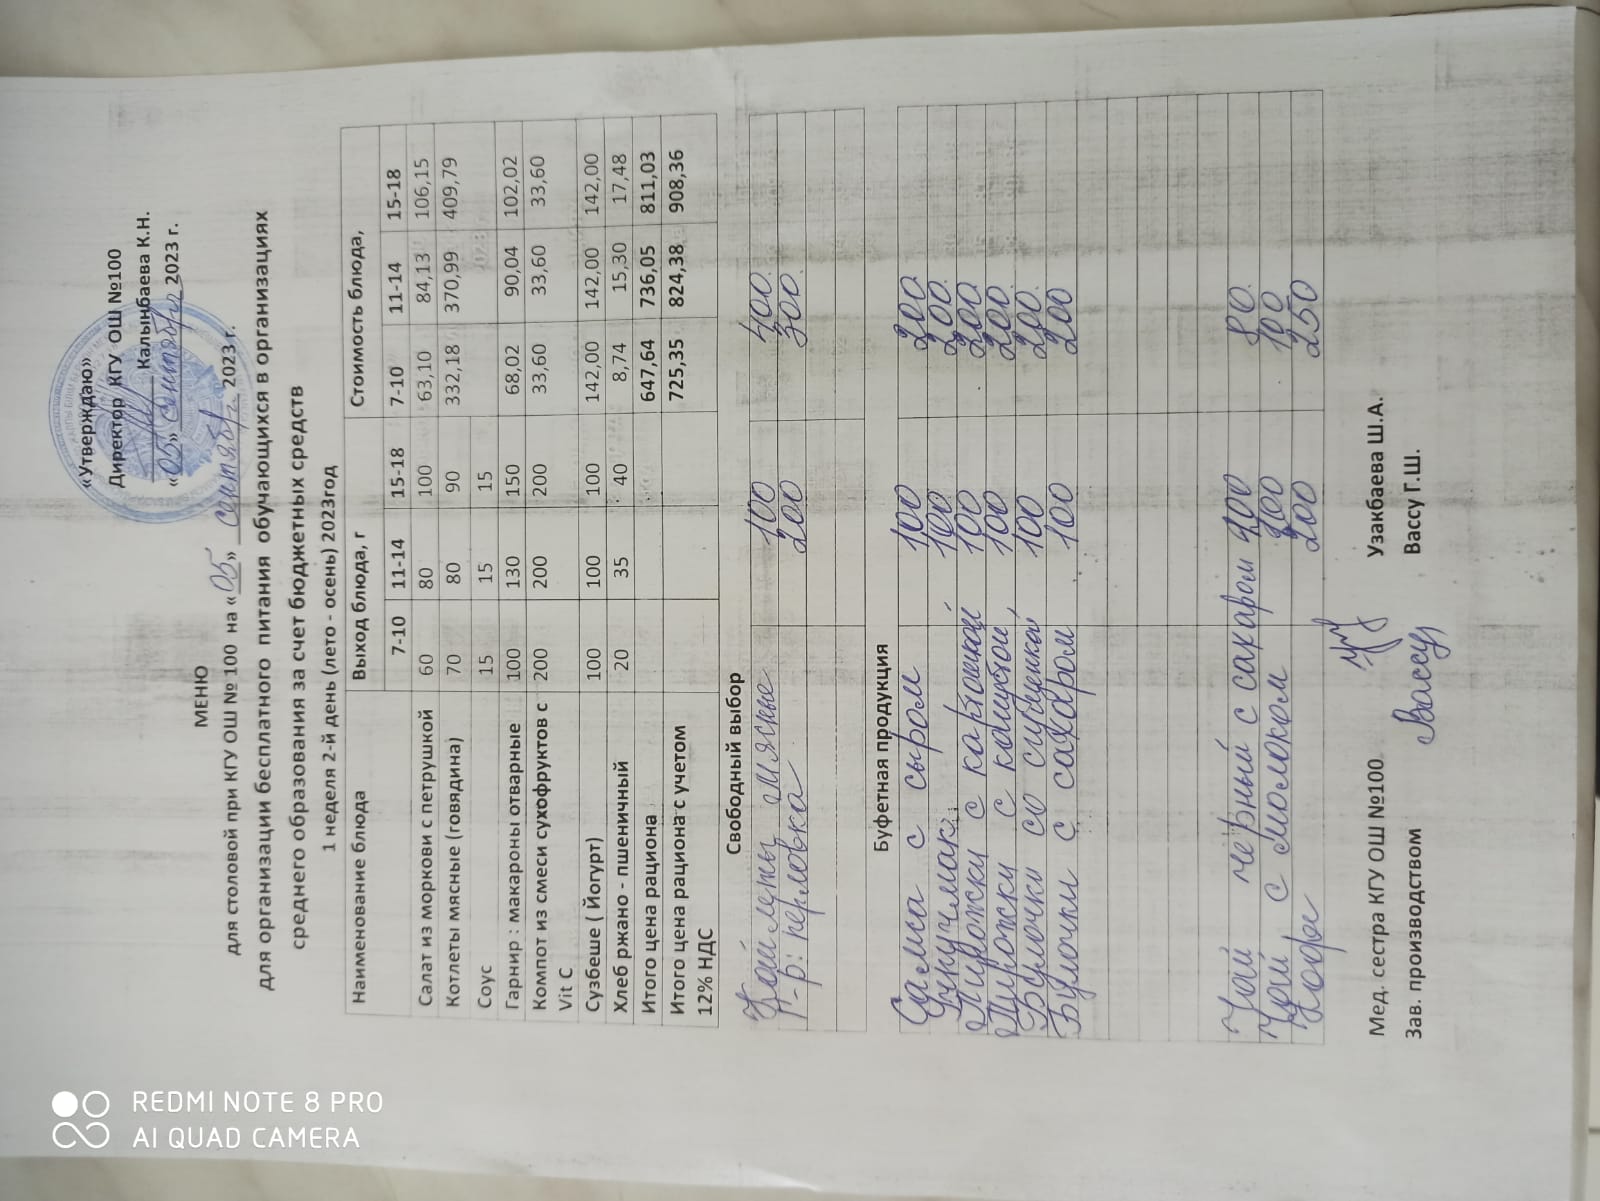 «Утверждаю»
Директор КГУ ОШ №100
Калынбаева К.Н.
«05» сентября 2023 г.
МЕНЮ
для столовой при КГУ ОШ № 100 на «05» сентябр. 2023 г.
для организации бесплатного питания обучающихся в организациях
среднего образования за счет бюджетных средств
1 неделя 2-й день (лето - осень) 2023год
Наименование блюда Выход блюда, г Стоимость блюда,
7-10 11-14 15-18 7-10 11-14 15-18
Салат из моркови с петрушкой 60 80 100 63,10 84,13 106,15
Котлеты мясные (говядина) 70 80 90 332,18 370,99 409,79
Соус 15 15 15
Гарнир : макароны отварные 100 130 150 68,02 90,04 102,02
Компот из смеси сухофруктов с 200 200 200 33,60 33,60 33,60
Vit C
Сузбеше ( Йогурт) 100 100 100 142,00 142,00 142,00
Хлеб ржано - пшеничный 20 35 40 8,74 15,30 17,48
Итого цена рациона 647,64 736,05 811,03
Итого цена рациона с учетом 725,35 824,38 908,36
12% НДС
Свободный выбор
Котлеты мясные 100 400
Г-р: перловка 200 300
Буфетная продукция
Самса с сыром 100 200
Учпучмак 100 200
Пирожки с картошкой 100 200
Пирожки с капустой 100 200
Булочки со сгущенкой 100 200
Булочки с сахаром 100 200
Чай черный с сахаром 200 80
Чай с молоком 200 100
Кофе 200 250
Мед. сестра КГУ ОШ №100. Узакбаева Ш.А.
Зав. производством Вассу Вассу Г.Ш.
REDMI NOTE 8 PRO
AI QUAD CAMERA